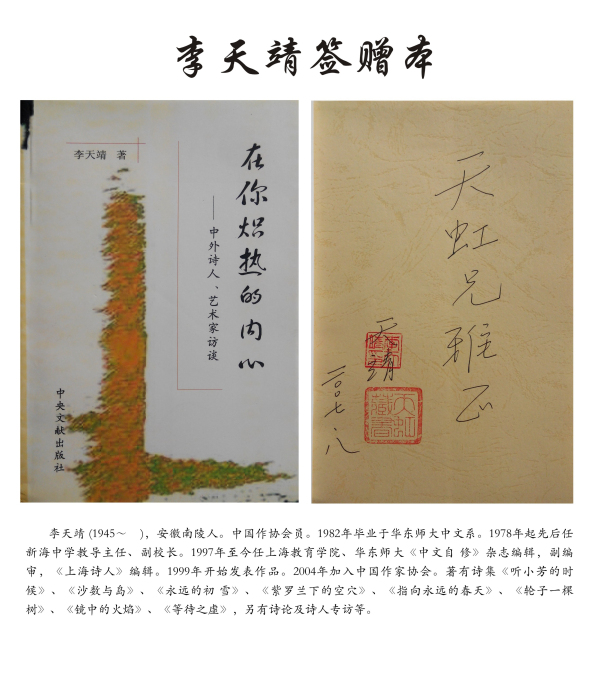 李天靖签赠本
李天靖 著
在你炽热的内心
——中外诗人、艺术家访谈
中央文献出版社
天虹兄雅正
天靖
二〇〇七.八
天虹
藏书
李天靖 (1945～ )，安徽南陵人。中国作协会员。1982年毕业于华东师大中文系。1978年起先后任
新海中学教导主任、副校长。1997年至今任上海教育学院、华东师大《中文自 修》杂志编辑，副编
审，《上海诗人》编辑。1999年开始发表作品。2004年加入中国作家协会。著有诗集《听小芳的时
候》、《沙数与鸟》、《永远的初 雪》、《紫罗兰下的空穴》、《指向永远的春天》、《轮子一棵
树》、《镜中的火焰》、《等待之虚》，另有诗论及诗人专访等。